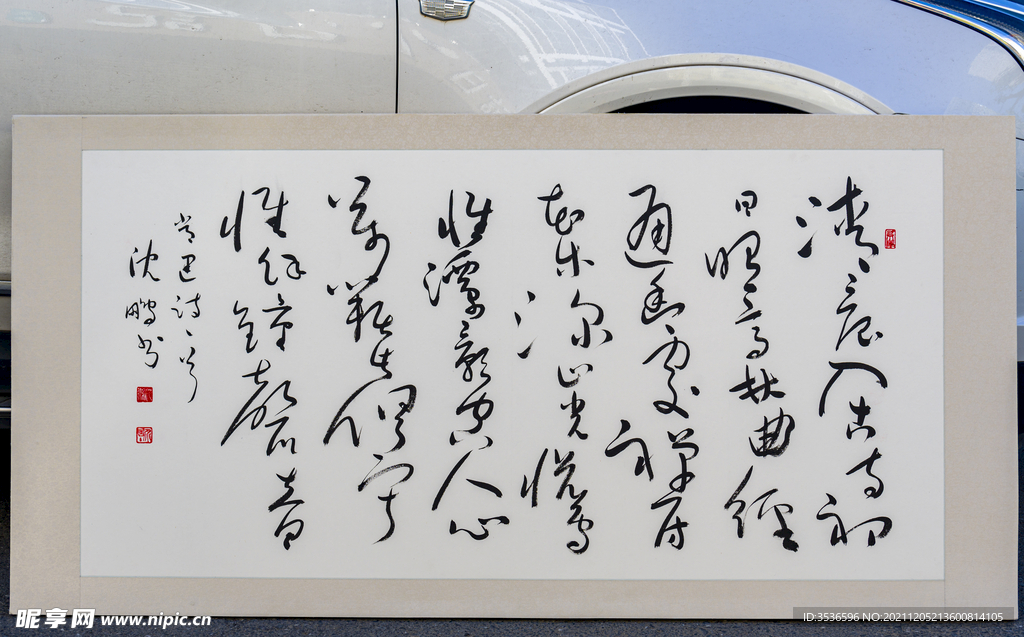 清晨入古寺初
日照高林曲徑
通幽處禪房
花木深山光悦鳥
性潭影空人心
萬籟此俱寂
惟餘鐘磬音
常建詩一首
沈鵬书
昵享网 www.nipic.cn
ID:3536596 NO:20211205213600814105